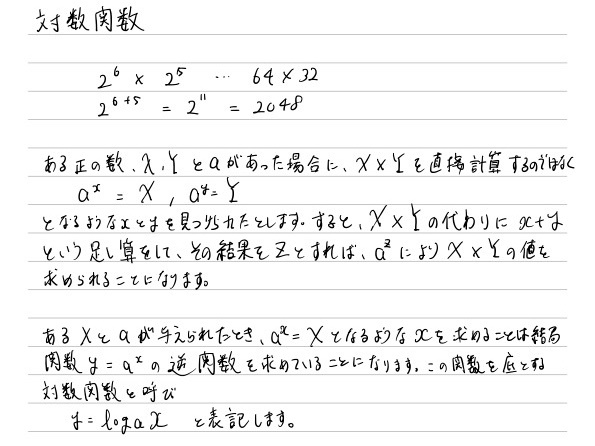 対数関数
2⁶ × 2⁵ … 64 × 32
2⁶⁺⁵ = 2¹¹ = 2048
ある正の数、X, Yとaがあった場合に、X×Yを直接計算するのではなく
aˣ = X , aʸ = Y
となるようなxとyを見つけられたとします。すると、X×Yの代わりにx+y
という足し算をして、その結果をzとすれば、aᶻによりX×Yの値を
求められることになります。
あるXとaが与えられたとき、aˣ=Xとなるようなxを求めることは結局
関数y=aˣの逆関数を求めていることになります。この関数を底とする
対数関数と呼び
y=logaX と表記します。